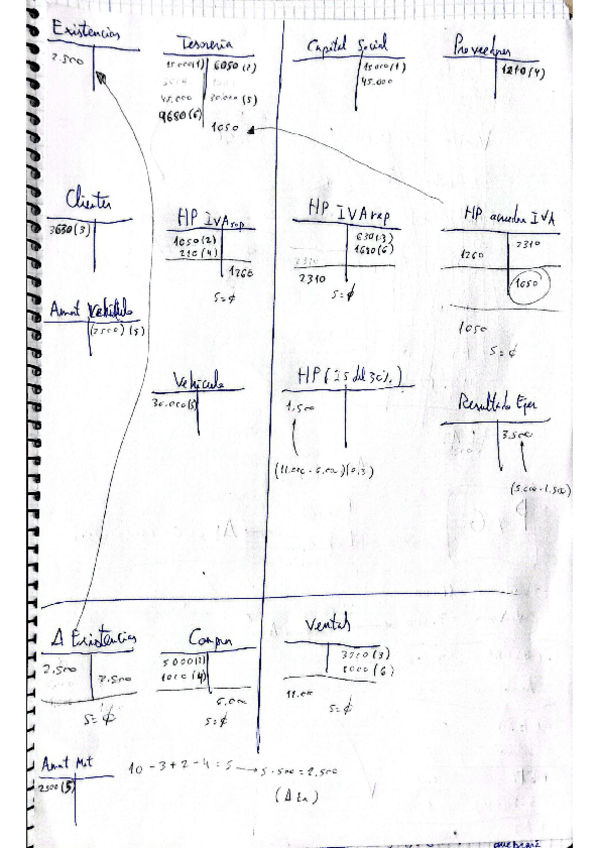 Existencias
2.500
Tesorería
15000(1) 6050(2)
45.000 30.000(5)
9680(6)
1050
Capital Social
15000(1)
45.000
Proveedores
1210(4)
Clientes
3630(3)
HP IVA sop
1050(2)
210(4)
1260
S=¢
HP IVA rep
630(3)
1680(6)
2310
2310
S=¢
HP acreedor IVA
2310
1260
1050
1050
S=¢
Amort Vehículo
(2500)(5)
Vehículo
30.000(5)
HP (IS del 30%)
1.500
(11.000 - 6.000)(0,3)
Resultado Ejer
3.500
(5.000 - 1.500)
Δ Existencias
2.500
2.500
S=¢
Compras
5000(2)
1000(4)
6.000
S=¢
Ventas
(3)
8000(6)
11.000
S=¢
Amort Mat
2500(5)
10 - 3 + 2 - 4 = 5 → 5 · 500 = 2.500
(Δ Ex)